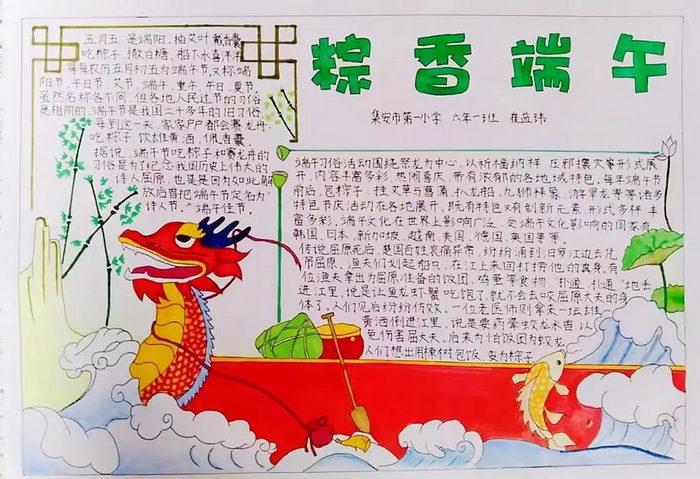 粽香端午
集安市第一小学 六年一班 崔益玮
五月五,是端阳,插艾叶戴香囊
吃粽子,撒白糖,船下水喜洋洋
每年农历五月初五为端午节,又称端
阳节,午日节,艾节,端午,重午,午日,夏节.
虽然名称各不同,但各地人民过节的习俗
是相同的.端午节是我国二千多年的旧习俗,
每到这一天,家家户户都会赛龙舟,
吃粽子,饮雄黄酒,佩香囊.
据说,端午节吃粽子和赛龙舟的
习俗是为了纪念我国历史上伟大的
诗人屈原,也是是因为如此,解
放后曾把端午节定名为
"诗人节","端午佳节".
端午习俗活动围绕祭龙为中心,以祈福纳祥、压邪攘灾等形式展
开,内容丰富多彩,热闹喜庆,带有浓郁的各地域特色,每年端午节
前后,包粽子、挂艾草与菖蒲、扒龙船、九狮拜象、游旱龙等等诸多
特色节庆活动在各地展开,既有特色又有创新元素,形式多种丰
富多彩,端午文化在世界上影响广泛,受端午文化影响的国家有
韩国、日本、新加坡、越南、美国、德国、英国等等.
传说屈原死后,楚国百姓哀痛异常,纷纷涌到汨罗江边去凭
吊屈原,渔夫们划起船只,在江上来回打捞他的真身,有
位渔夫拿出为屈原准备的饭团、鸡蛋等食物,"扑通、扑通"地丢
进江里,说是让鱼龙虾蟹吃饱了,就不会去咬屈原大夫的身
体了,人们见后纷纷仿效,一位老医师则拿来一坛雄
黄酒倒进江里,说是要药晕蛟龙水兽,以
免伤害屈大夫,后来为怕饭团为蛟龙
人们想出用楝树包饭,变为粽子